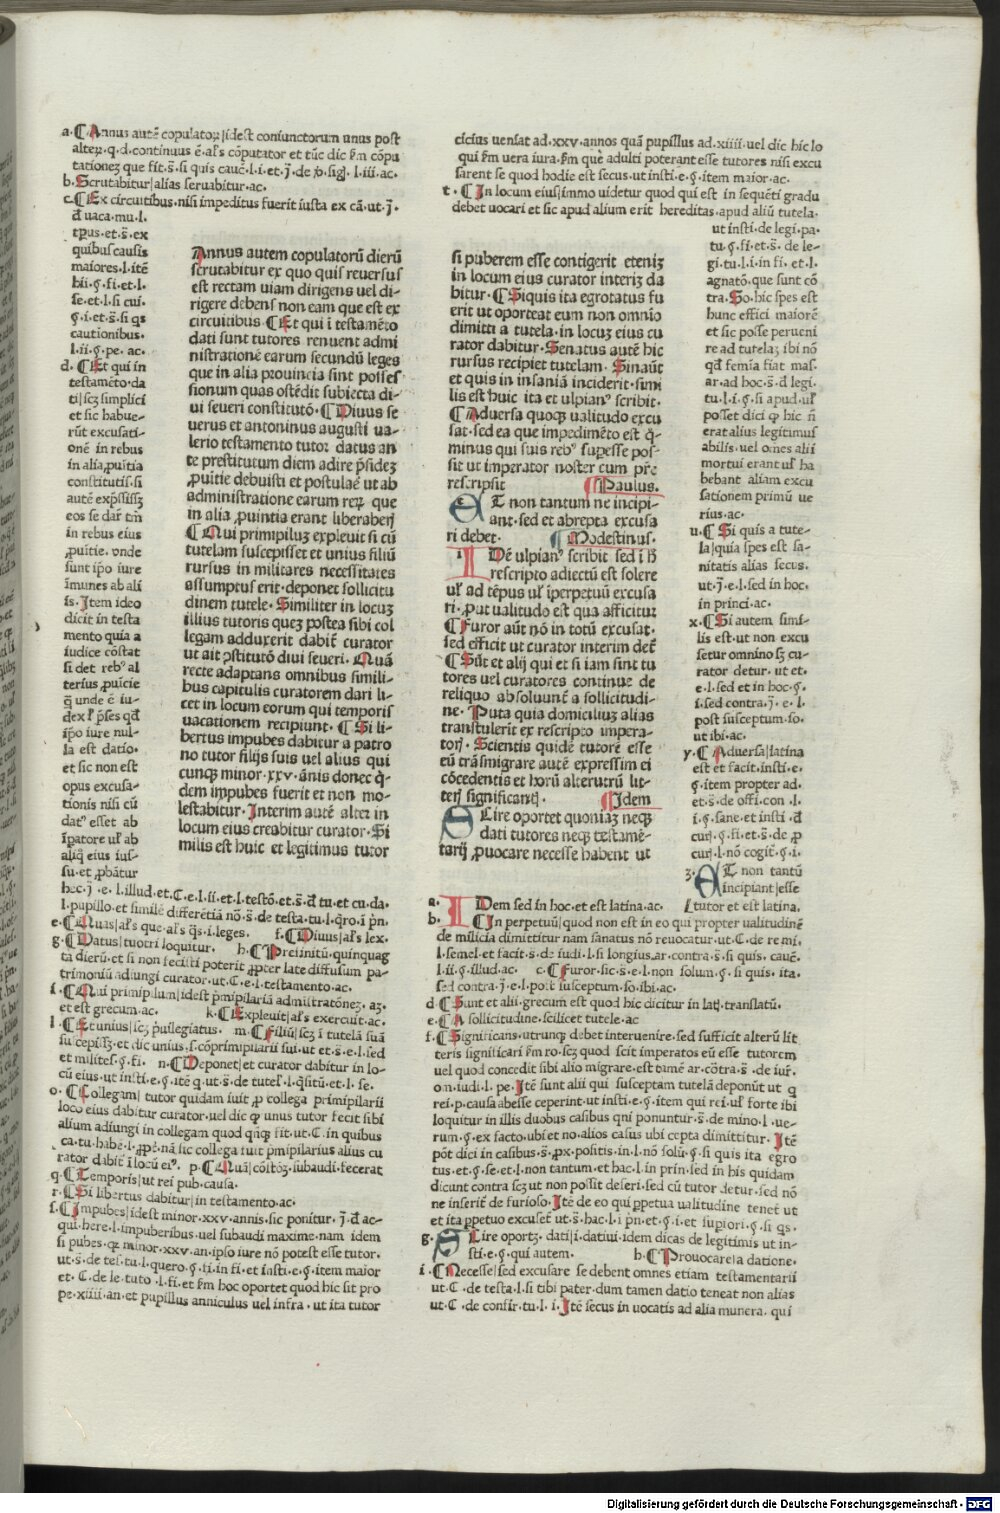 a·⸿Annuз autē copulatoꝝ|idest coniunctorum unus post
alteꝝ·q·d·continuus ē·al's cōputator et tūc dic ẜm cōpu
tationeз que fit·s̄·si quis cauē·l·i·et·j̄·de
b·Scrutabitur|alias seruabitur·ac·
c·⸿Ex circuitibus·nisi impeditus fuerit iusta ex cā·ut·j̄·
đ uaca·mu·l·
tꝑus·et·s̄·ex
quibus causis
maiores·l·itē
hii·ꝭ·fi·et·l·
se·et·l·si cui·
ꝭ·i·et·s̄·si qs
cautionibus·
l·ii·ꝭ·pe·ac·
d·⸿Et qui in
testamēto·da
ti|scꝫ simplici
et sic habue-
rūt excusati-
onē in rebus
in alia ꝓuītia
constitutis·si
autē exp̄ssissꝫ
eos se dar̄ tm̄
in rebus eius
ꝓuītie·vnde
sunt ip̄o iure
īmunes ab ali
is·Item ideo
dicit in testa
mento quia a
iudice cōstat
si det reb⁹ al
terius ꝓuīcie
q̄ unde ē iu-
dex
ip̄o iure nul-
la est datio·
et sic non est
opus excusa-
tionis nisi cū
dat⁹ esset ab
īpatore ul' ab
aliq̄ eius ius-
su·et ꝓbātur
hec·j̄·e·l·illud·et·C·e·l·ii·et·l·testō·et·s̄·đ tu·et cu·da·
l·pupillo·et simile differētiā nō·s̄·de testa·tu·l·qro·i pn̄·
e·⸿Quas|al's que·al's qs̄·i·leges· f·⸿Diuus|al's lex·
g·⸿Datus|tuotri loquitur· h·⸿Prefinitū·quinquag
ta dierū·et si non fecūti poterit ꝓpter late diffusum pa-
trimoniū adiungi curator·ut·C·e·l·testamento·ac·
i·⸿Qui primipilum|idest pm̄ipilariā administratōneꝫ·aꝫ·
et est grecum·ac· k·⸿Expleuit|al's exercuit·ac·
l·⸿Et unius|scꝫ p̄uilegiatus· m·⸿Filiū|scꝫ ī tutelā suā
suscepissꝫ·et dic unius·s·cōprimipilarii sui·ut et·s̄·e·l·sed
et milites·ꝭ·fi· n·⸿Deponet|et curator dabitur in lo-
cū eius·ut insti·e·ꝭ·itē q·ut·s̄·de tutel'·l·qsitū·et·l·se·
o·⸿Collegam|tutor quidam fuit ꝓ collega primipilarii
loco eius dabitur curator·uel dic ꝙ unus tutor fecit sibi
alium adiungi in collegam quod qn̄q̄ fit·ut·C·in quibus
ca·tu·habe·l·ꝓpē·nā sic collega fuit pm̄ipilarius alius cu
rator dabit̄ ī locū ei⁹· p·⸿Quā|cōstōꝫ·subaudi·fecerat
q·⸿Temporis|ut rei pub·causa·
r·⸿Si libertus dabitur|in testamento·ac·
s·⸿Impubes|idest minor·xxv·annis·sic ponitur·j̄·đ ac-
qui·here·l·impuberibus·uel subaudi maxime·nam idem
si pubes·qꝫ minor·xxv·an·ipso iure nō potest esse tutor·
ut·s̄·de tes·tu·l·quero·ꝭ·fi·in fi·et īsti·e·ꝭ·item maior
et·C·de le·tuto·l·fi·et ẜm hoc oportet quod hic sit pro
pe·xiiii·an·et pupillus anniculus uel infra·ut ita tutor
Annus autem copulatorū dierū
scrutabitur ex quo quis reuersus
est rectam uiam dirigens uel di-
rigere debens non eam que est ex
circuitibus·⸿Et qui ī testamēto
dati sunt tutores renuent admi
nistrationē earum secundū leges
que in alia prouincia sint posses
sionum quas ostēdit subiecta di-
ui seueri constitutō·⸿Diuus se
uerus et antoninus augusti ua-
lerio testamento tutor datus an
te prestitutum diem adire p̄sideꝫ
ꝓuītie debuisti et postulaē ut ab
administratione earum reꝝ que
in alia ꝓuintia erant liberaberiȷ
⸿Qui primipiluꝫ expleuit si cū
tutelam suscepisset et unius filiū
rursus in militares necessitates
assumptus erit·deponet sollicitu
dinem tutele·Similiter in locuꝫ
illius tutoris queꝫ postea sibi col
legam adduxerit dabit̄ curator
ut ait ꝯstitutō diui seueri·Quā
recte adaptans omnibus simili-
bus capitulis curatorem dari li-
cet in locum eorum qui temporis
uacationem recipiunt·⸿Si li-
bertus impubes dabitur a patro
no tutor filijs suis uel alius qui
cunqꝫ minor·xxv·ānis donec q̄-
dem impubes fuerit et non mo-
lestabitur·Interim autē alter in
locum eius creabitur curator·Si
milis est huic et legitimus tutor
cicius ueniat ad·xxv·annos quā pupillus ad·xiiii·uel dic hic lo
qui ẜm uera iura·ẜm quē adulti poterant esse tutores nisi excu
sarent se quod hodie est secus·ut insti·e·ꝭ·item maior·ac·
t·⸿In locum eius|immo uidetur quod qui est in sequēti gradu
debet uocari et sic apud alium erit hereditas·apud aliū tutela·
ut insti·de legi·pa·
tu·ꝭ·fi·et·s̄·de le-
gi·tu·l·i·in fi·et·l·
agnatō·que sunt cō
tra·So·hic spes est
hunc effici maiorē
et sic posse perueni
re ad tutelaꝫ ibi nō
qđ femīa fiat mas·
ar·ad hoc·s̄·đ legi·
tu·l·i·ꝭ·si apud·ul'
posset dici ꝙ hic n̄
erat alius legitimus
abilis·uel omēs alii
mortui erant ul' ha
bebant aliam excu
sationem primū ue
rius·ac·
u·⸿Si quis a tute-
la|quia spes est sa-
nitatis alias secus·
ut·j̄·e·l·sed in hoc·
in princi·ac·
x·⸿Si autem simi-
lis est·ut non excu
setur omnino sꝫ cu-
rator detur·ut et·
e·l·sed et in hoc·ꝭ·
i·sed contra·j̄·e·l·
post susceptum·so·
ut ibi·ac·
y·⸿Aduersa|latina
est et facit·insti·e·
ꝭ·item propter ad·
et·s̄·de offi·con·l·
i·ꝭ·sane·et insti·đ
curȷ·ꝭ·fi·et·s̄·de ꝓ
curȷ·l·nō cogit̄·ꝭ·i·
ꝫ·At non tantū
incipiant|esse
tutor et est latina·
si puberem esse contigerit eteniꝫ
in locum eius curator interiꝫ da
bitur·⸿Siquis ita egrotatus fu
erit ut oporteat eum non omnio
dimitti a tutela·in locuꝫ eius cu
rator dabitur·Senatus autē hic
rursus recipiet tutelam·Sinaūt
et quis in insaniā inciderit·simi
lis est huic ita et ulpian⁹ scribit·
⸿Aduersa quoqꝫ ualitudo excu
sat·sed ea que impedimēto est q̄-
minus qui suis reb⁹ suꝑesse pos-
sit ut imperator noster cum pr̄e
rescripsit ⸿Paulus·
Et non tantum ne incipi-
ant·sed et abrepta excusa
ri debet· ⸿Modestinus·
IDē ulpian⁹ scribit sed ī ħ
rescripto adiectū est solere
ul' ad tēpus ul' īperpetuū excusa
ri·ꝓut ualitudo est qua afficitur
⸿Furor aūt nō in totū excusat·
sed efficit ut curator interim det̄
⸿Sūt et alij qui et si iam sint tu
tores uel curatores continue de
reliquo absoluunt̄ a sollicitudi-
ne·Puta quia domiciliuꝫ alias
transtulerit ex rescripto impera-
toriȷ·Scientis quidē tutorē esse
eū trāsmigrare autē expressim ei
cōcedentis et horū alterutrū lit-
teriȷ significantiȷ· ⸿Idem
Scire oportet quoniaꝫ neqꝫ
dati tutores neqꝫ testamē-
tarij ꝓuocare necesse habent ut
a·IDem sed in hoc·et est latina·ac·
b·⸿In perpetuū|quod non est in eo qui propter ualitudinē
de milicia dimittitur nam sanatus nō reuocatur·ut·C·de re mi·
l·semel·et facit·s̄·de iudi·l·si longius·ar·contra·s̄·si quis·cauē·
l·ii·ꝭ·illud·ac· c·⸿Furor·sic·s̄·e·l·non solum·ꝭ·si quis·ita·
sed contra·j̄·e·l·post susceptum·so·ibi·ac·
d·⸿Sunt et alii·grecum est quod hic dicitur in latȷ·translatū·
e·⸿A sollicitudine·scilicet tutele·ac
f·⸿Significans·utrunqꝫ debet interuenire·sed sufficit alterū lit
teris significari ẜm ro·scꝫ quod scit imperatos eū esse tutorem
uel quod concedit sibi alio migrare·est tamē ar·cōtra·s̄·de iur̄·
om·iudi·l·pe·Itē sunt alii qui susceptam tutelā deponūt ut q̄
rei·p·causa abesse ceperint·ut insti·e·ꝭ·item qui rei·ul' forte ibi
loquitur in illis duobus casibus qui ponuntur·s̄·de mino·l·ue-
rum·ꝭ·ex facto·ubi et no·alios casus ubi cepta dimittitur·Itē
pōt dici in casibus·s̄·ꝓx·positis·in·l·nō solū·ꝭ·si quis ita egro
tus·et·ꝭ·se·et·l·non tantum·et hac·l·in prin·sed in his quidam
dicunt contra scꝫ ut non possit deseri·sed cū tutor detur·sed nō
ne inserit̄ de furioso·Itē de eo qui ꝑpetua ualitudine tenet̄ ut
et ita ꝑpetuo excuset̄ ut·s̄·hac·l·i pn̄·et·ꝭ·i·et supiori·ꝭ·si qs·
g·Scire oportꝫ·dati|i·datiui·idem dicas de legitimis ut in-
sti·e·ꝭ·qui autem· h·⸿Prouocare|a datione·
i·⸿Necesse|sed excusare se debent omnes etiam testamentarii
ut·C·de testa·l·si tibi pater·dum tamen datio teneat non alias
ut·C·de confir·tu·l·i·Itē secus in uocatis ad alia munera·qui
Digitalisierung gefördert durch die Deutsche Forschungsgemeinschaft · DFG